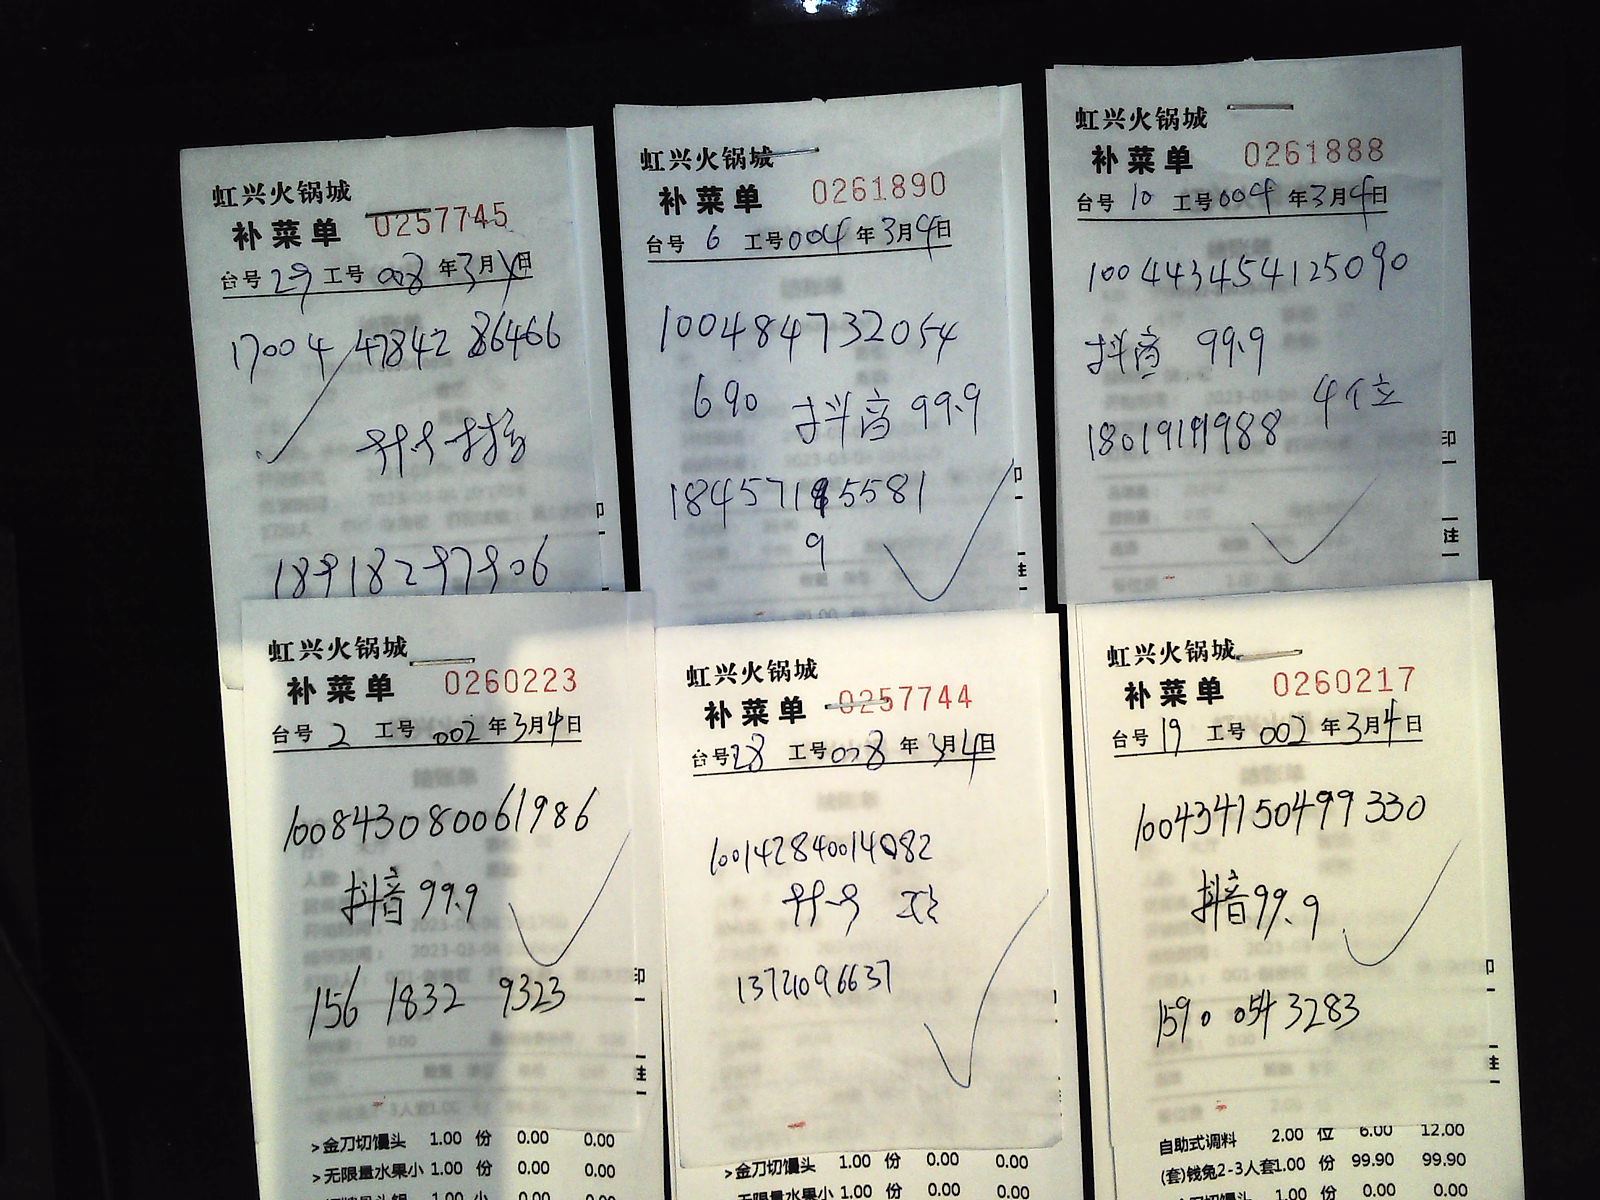 虹兴火锅城
补菜单 0257745
台号 29 工号 008 年3月4日
17004 47842 86466
抖音
18918297906
虹兴火锅城
补菜单 0261890
台号 6 工号 004 年3月4日
100484732054
690 抖音 99.9
18457195581
9
印
注
虹兴火锅城
补菜单 0261888
台号 10 工号 004 年3月4日
100443454125090
抖音 99.9
4位
18019119988
印
注
虹兴火锅城
补菜单 0260223
台号 2 工号 002 年3月4日
100843080061986
抖音 99.9
156 1832 9323
印
注
>金刀切馒头 1.00 份 0.00 0.00
>无限量水果小 1.00 份 0.00 0.00
虹兴火锅城
补菜单 0257744
台号 28 工号 008 年3月4日
100142840014082
13721096637
>金刀切馒头 1.00 份 0.00 0.00
无限量水果小 1.00 份 0.00 0.00
虹兴火锅城
补菜单 0260217
台号 19 工号 002 年3月4日
100434150499330
抖音99.9
1590 054 3283
印
注
自助式调料 2.00 位 6.00 12.00
(套)钱兔2-3人套1.00 份 99.90 99.90
金刀切馒头 1.00 份 0.00 0.00